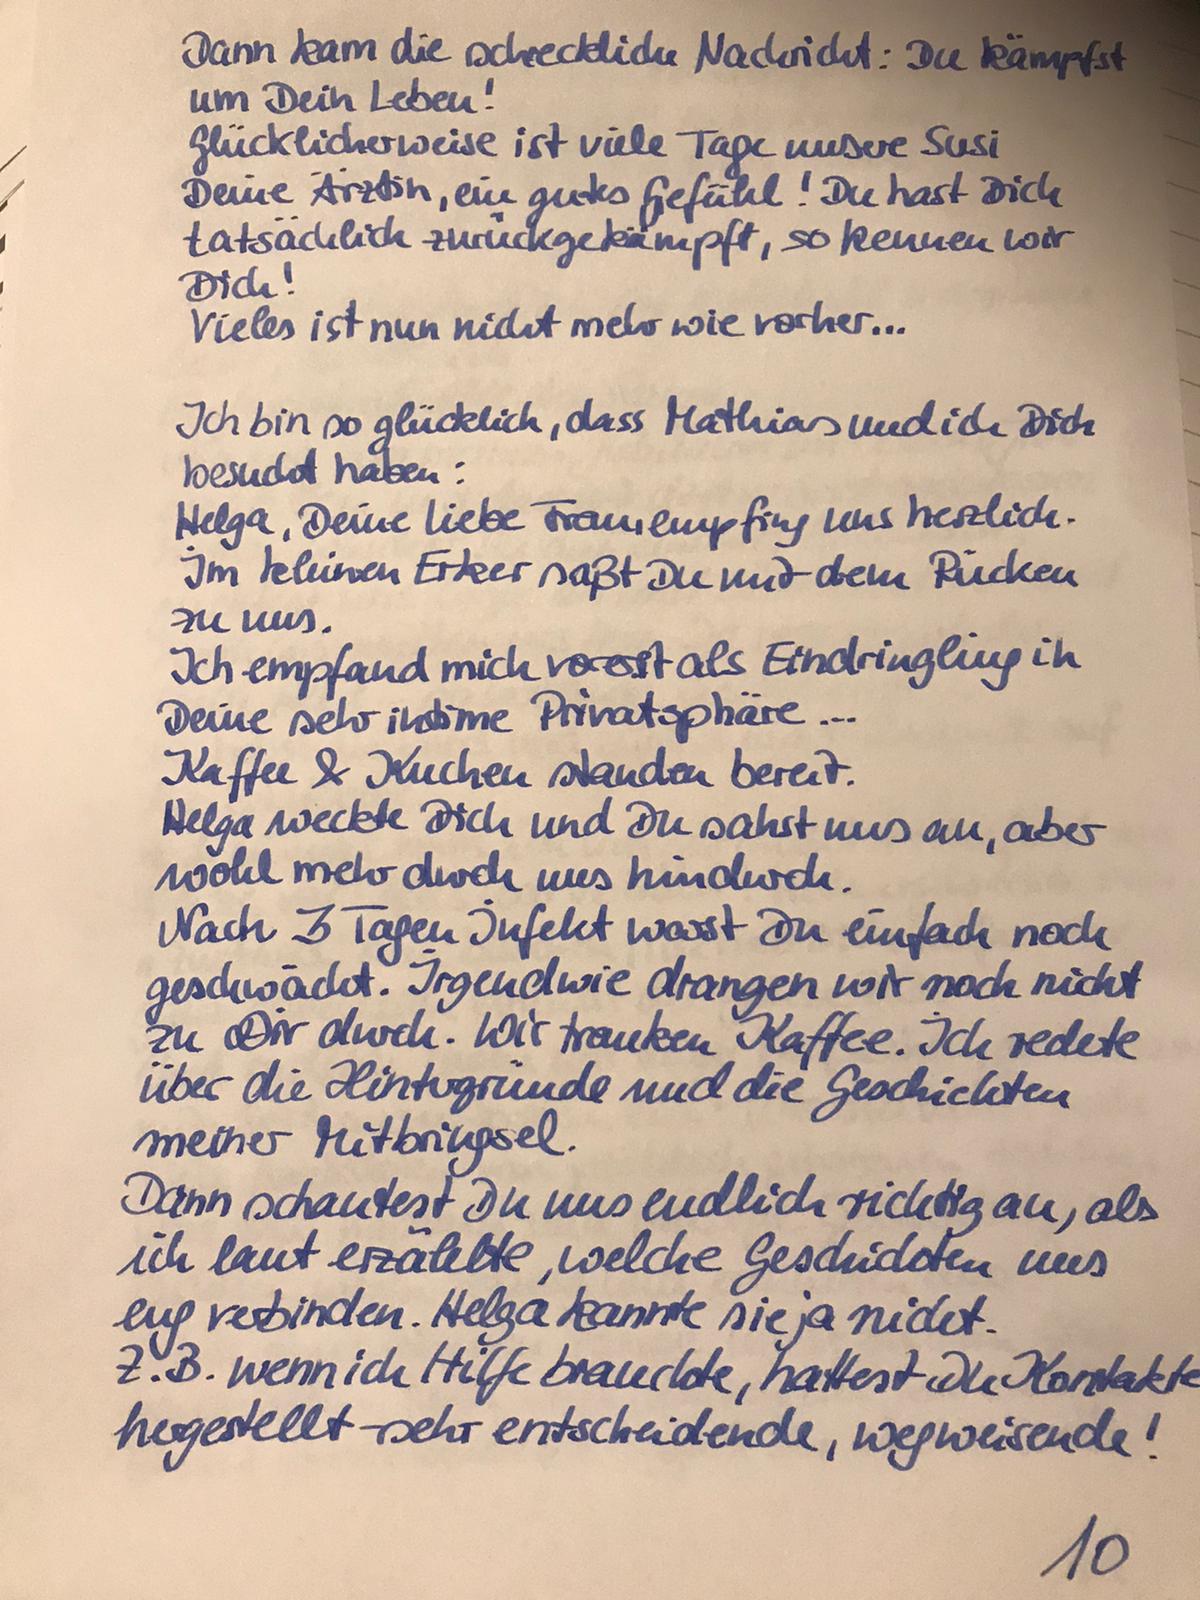 Dann kam die schreckliche Nachricht: Du kämpfst
um Dein Leben!
Glücklicherweise ist viele Tage unsere Susi
Deine Ärztin, ein gutes Gefühl! Du hast Dich
tatsächlich zurückgekämpft, so kennen wir
Dich!
Vieles ist nun nicht mehr wie vorher...
Ich bin so glücklich, dass Mathias und ich Dich
besucht haben:
Helga, Deine liebe Frau, empfing uns herzlich.
Im kleinen Erker saßt Du mit dem Rücken
zu uns.
Ich empfand mich vorerst als Eindringling in
Deine sehr intime Privatsphäre ...
Kaffee & Kuchen standen bereit.
Helga weckte Dich und Du sahst uns an, aber
wohl mehr durch uns hindurch.
Nach 3 Tagen Infekt warst Du einfach noch
geschwächt. Irgendwie drangen wir noch nicht
zu Dir durch. Wir tranken Kaffee. Ich redete
über die Hintergründe und die Geschichten
meiner Mitbringsel.
Dann schautest Du uns endlich richtig an, als
ich laut erzählte, welche Geschichten uns
eng verbinden. Helga kannte sie ja nicht.
Z.B. wenn ich Hilfe brauchte, hattest Du Kontakte
hergestellt - sehr entscheidende, wegweisende!
10